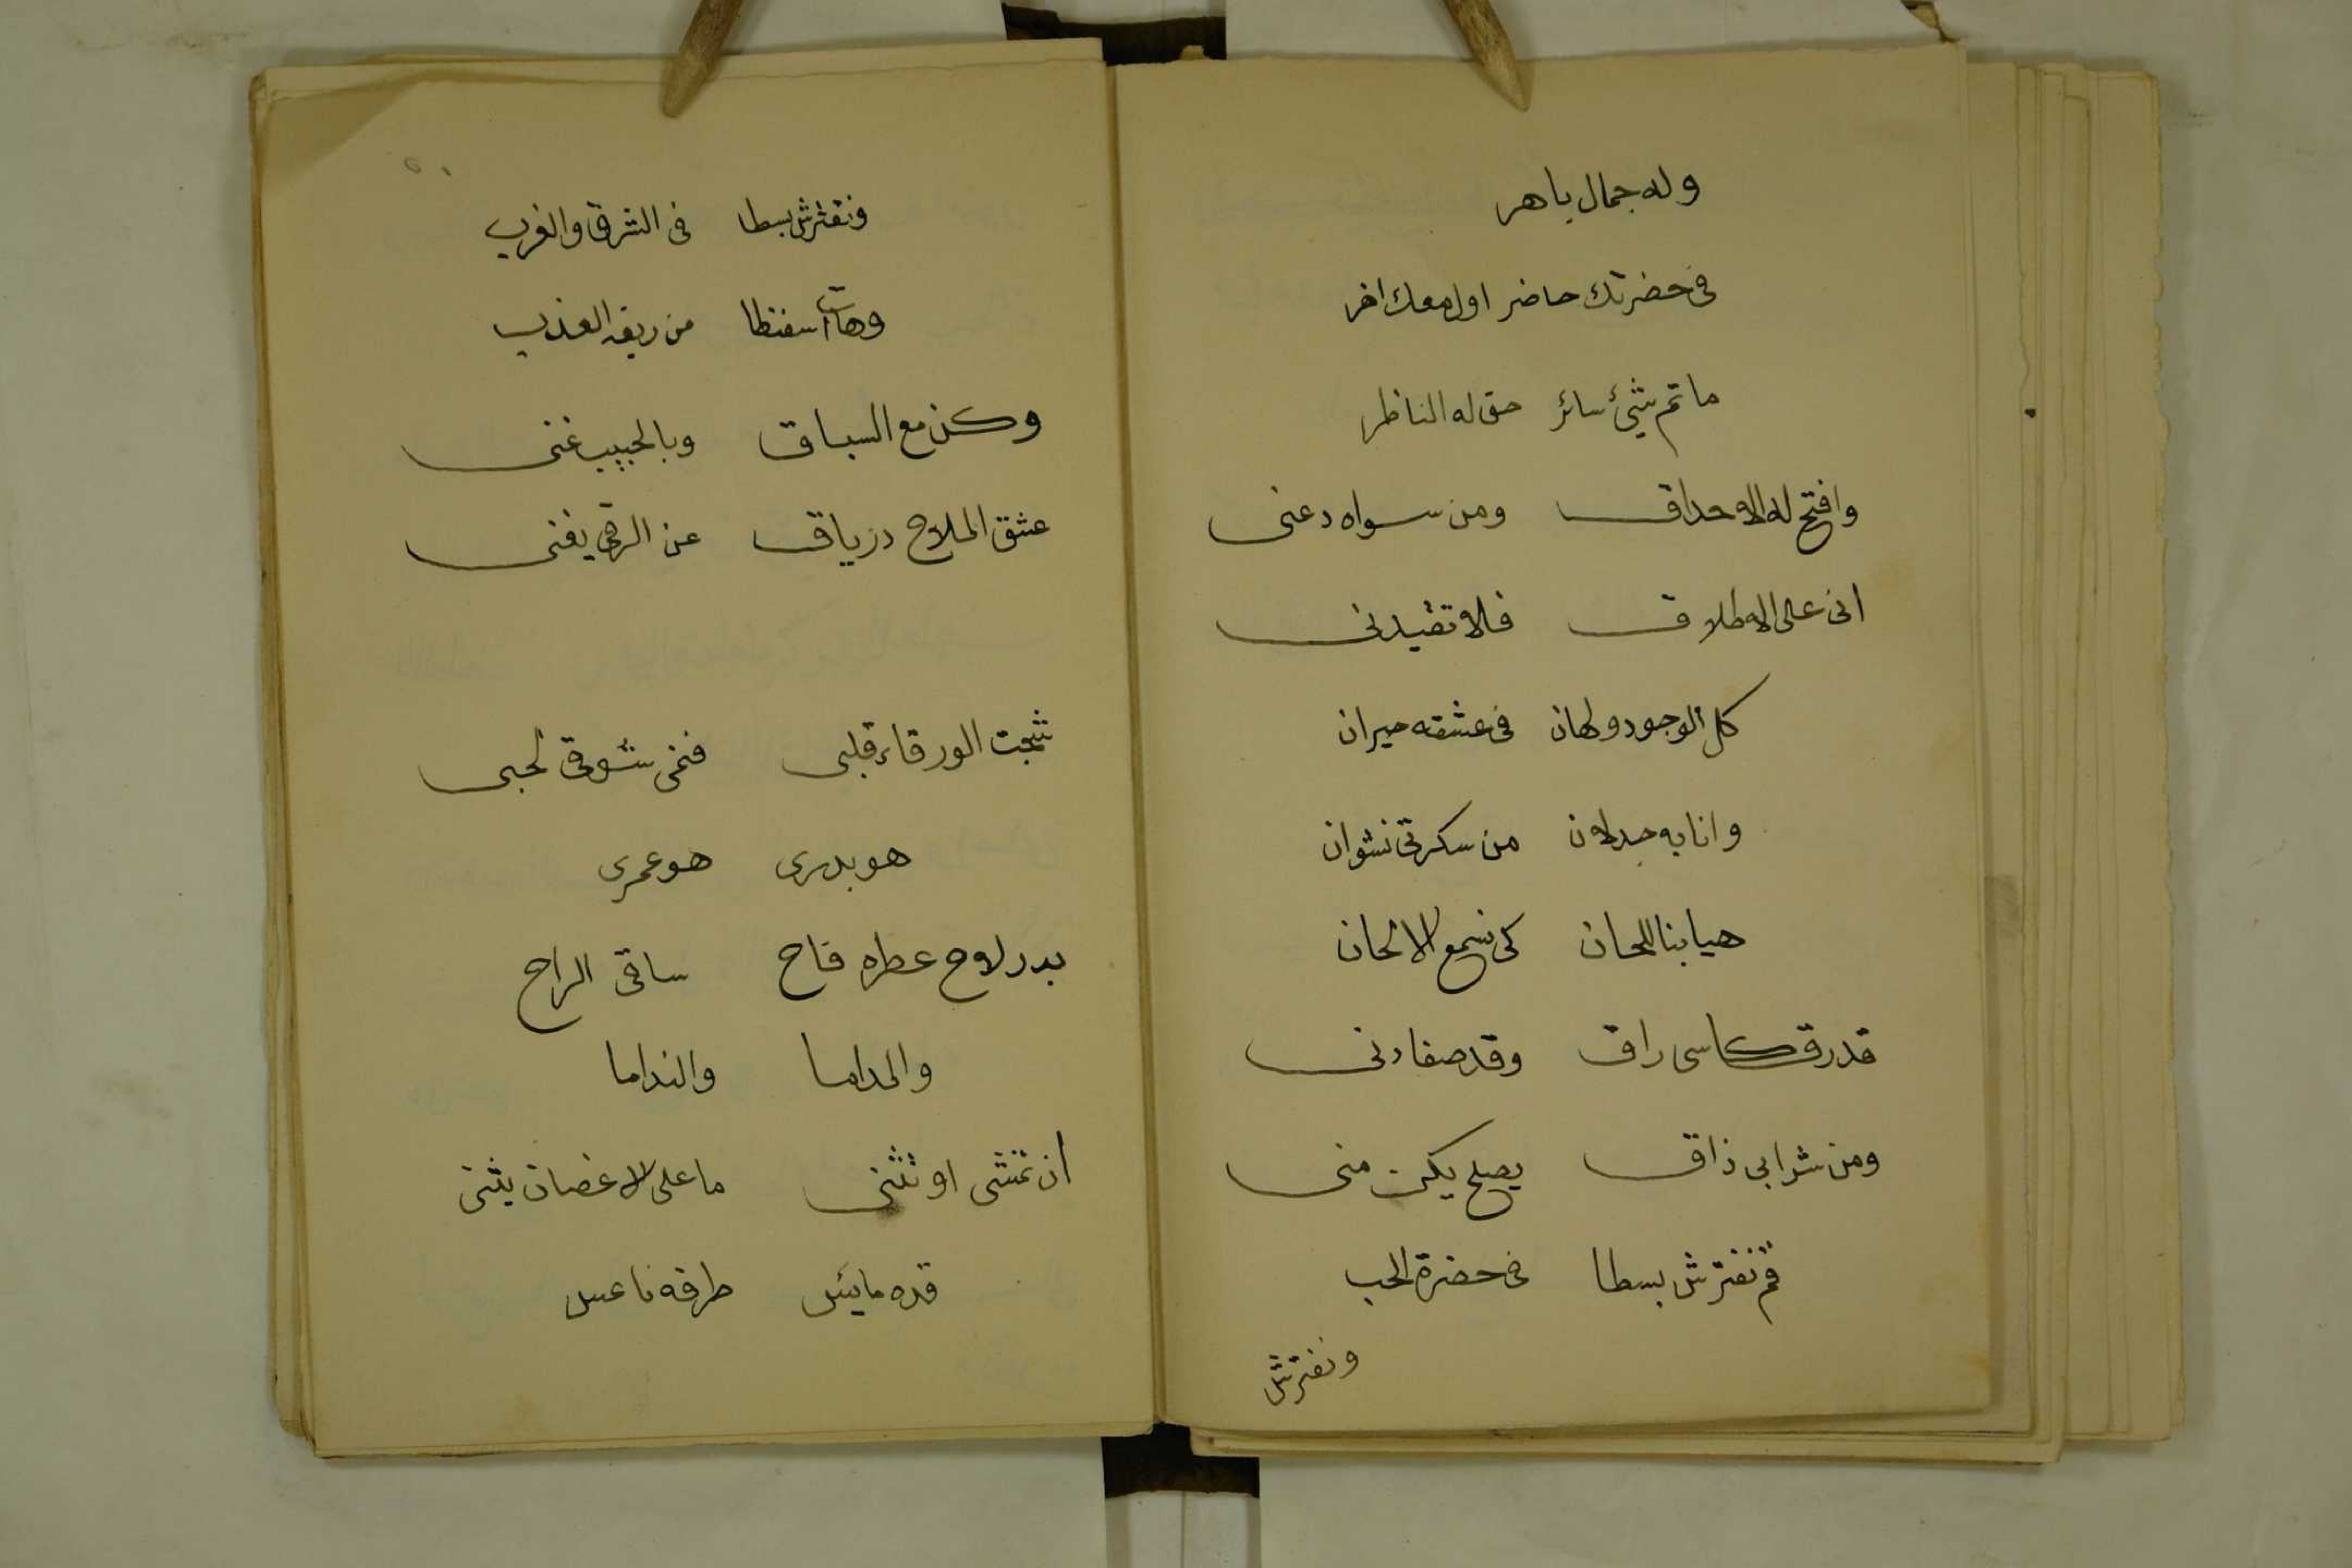 وله جمال باهر
فى حضرتك حاضر اول معك اخر
ما تم شيئ سائر حق له الناظر
وافتح له الاحداق ومن سواه دعنى
انى على الاطلاق فلا تقيدنى
كل الوجود ولهان فى عشقه حيران
وانا به جدلان من سكرتى نشوان
هيا بنا للحان كى نسمع الالحان
قد رق كاسى راق وقد صفا دنى
ومن شرابى ذاق يصلح يكن منى
قم نفترش بسطا فى حضرة الحب
ونفترش
ونفترش بسطا فى الشرق والغرب
وهات اسفنطا من ريقه العذب
وكن مع السباق وبالحبيب غنى
عشق الملاح درياق عن الرقى يغنى
شجت الورقاء قلبى فنمى شوقى لحبى
هو بدرى هو عمرى
بدر لاح عطره فاح ساقى الراح
والمداما والنداما
ان تمشى او تثنى ما على الاغصان يثنى
قده مايئس طرفه ناعس